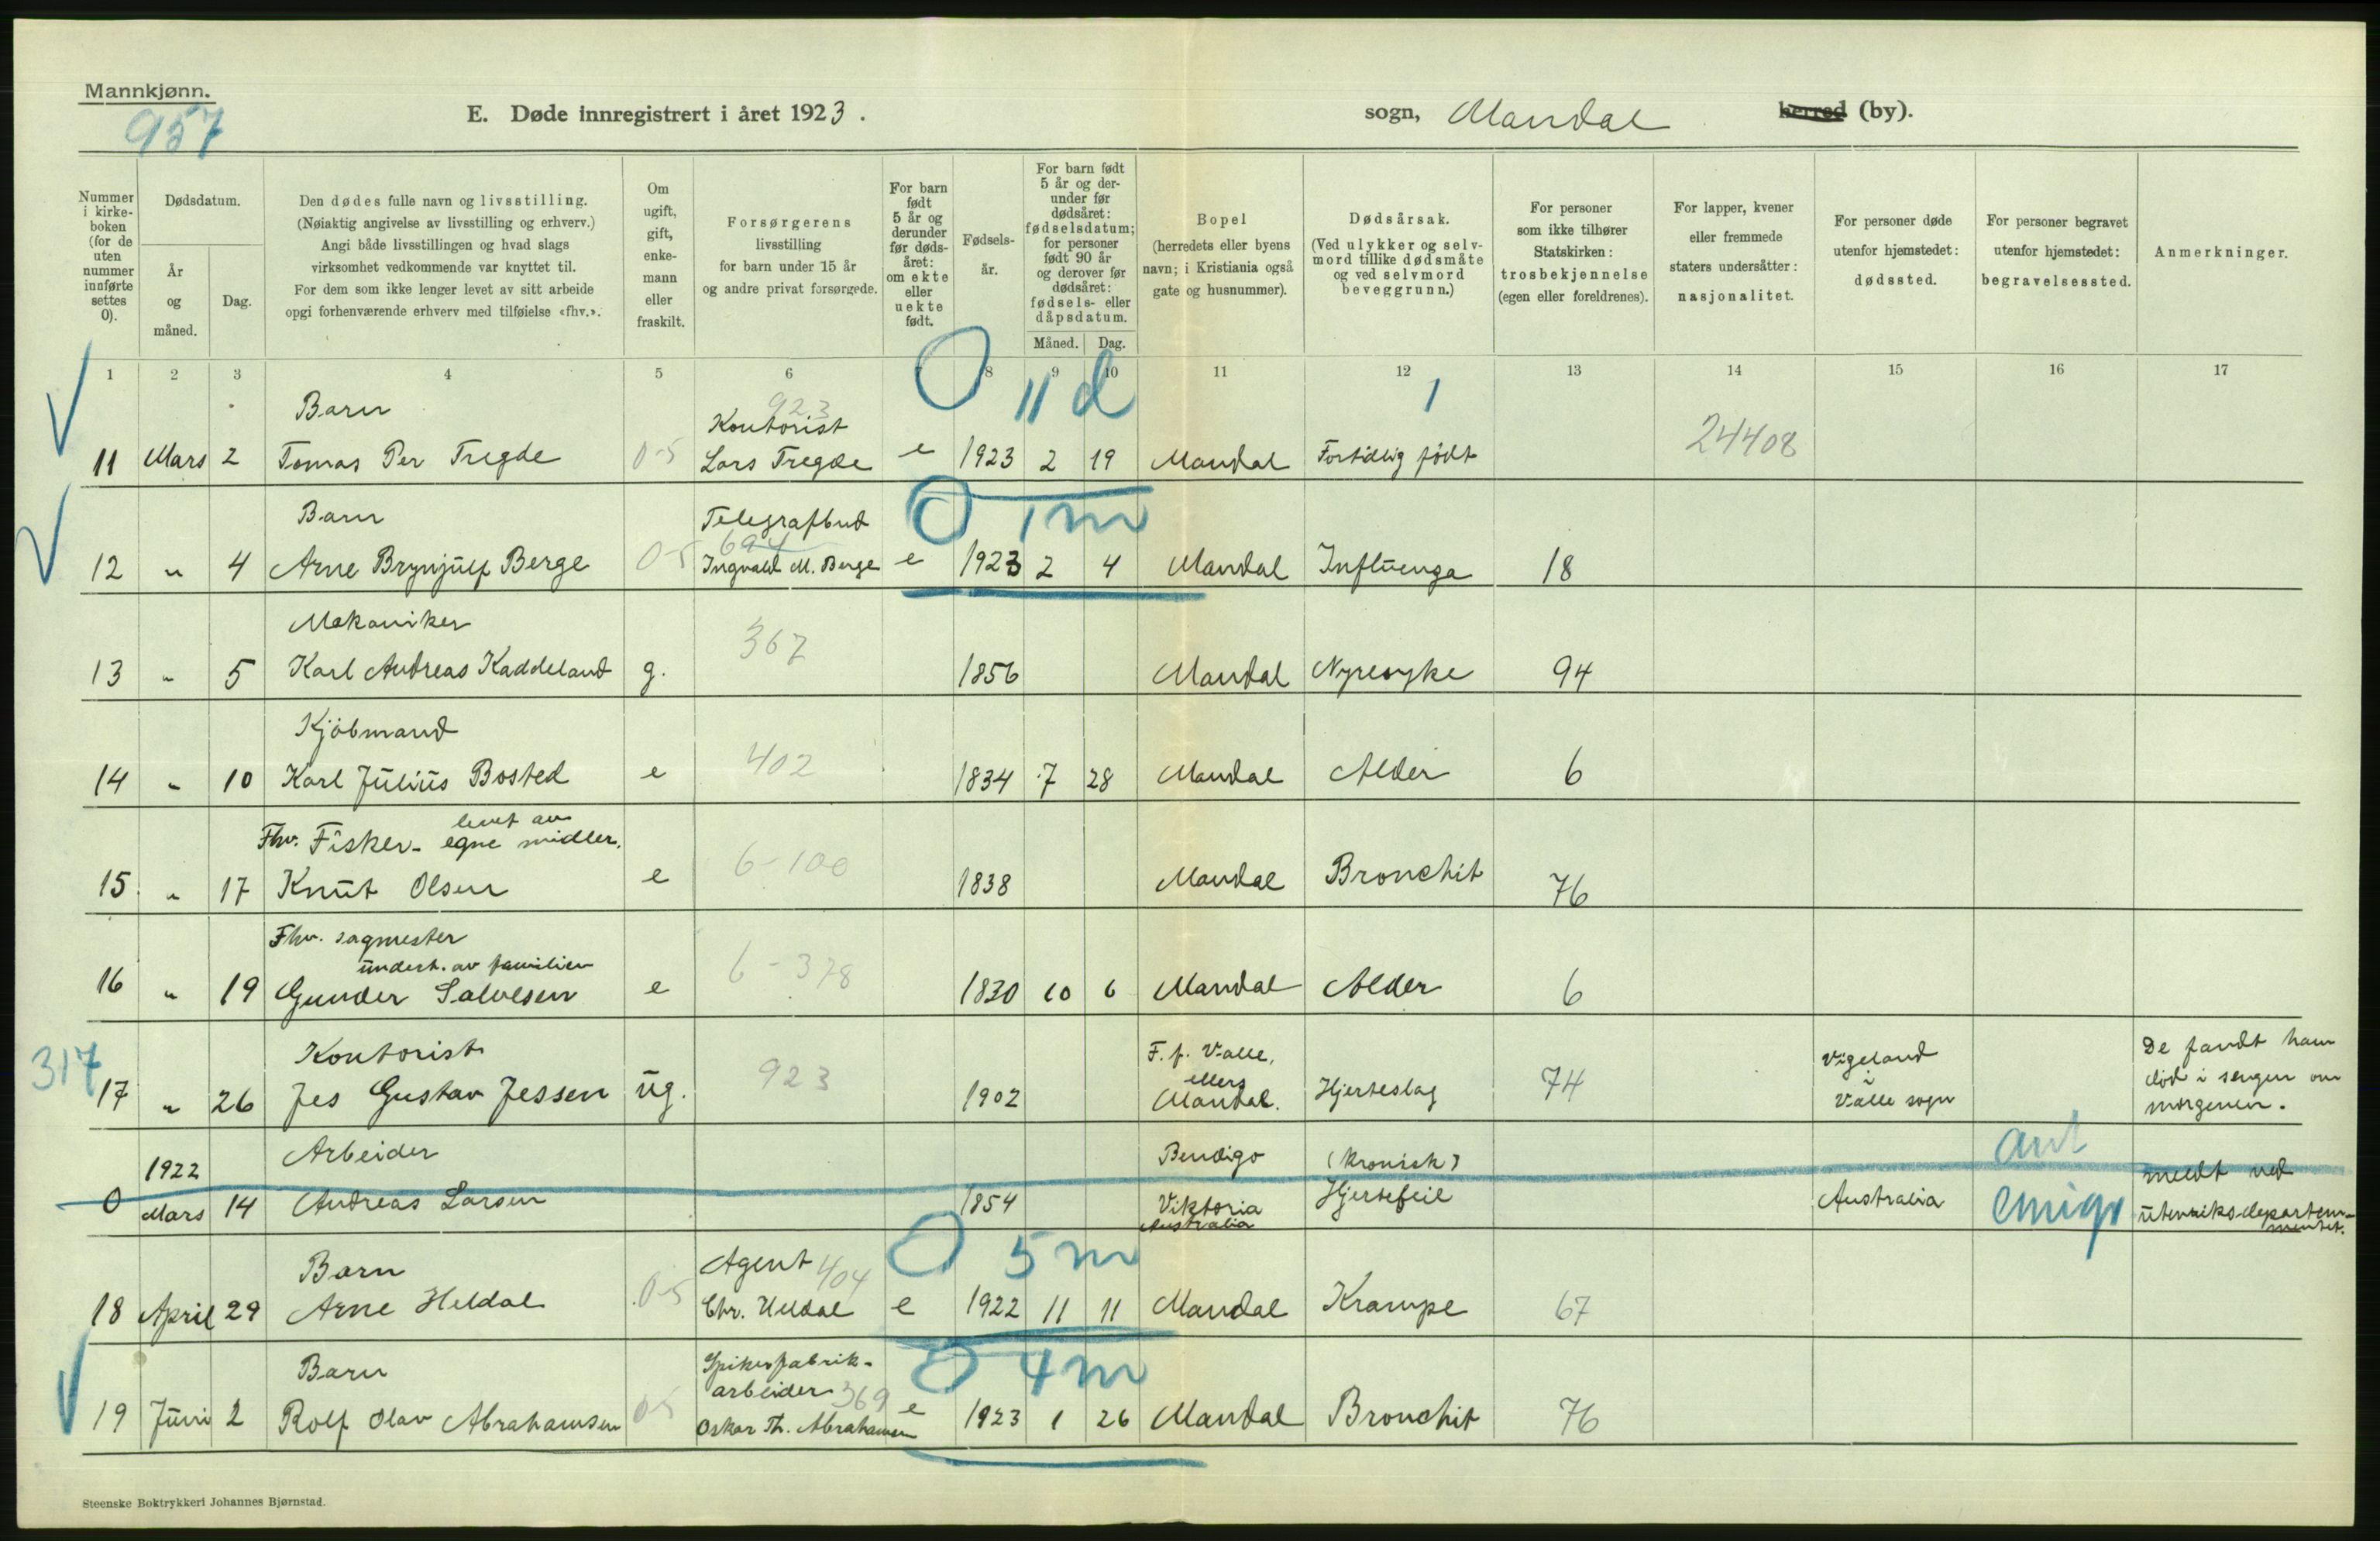 Mannkjønn.
957
E. Døde innregistrert i året 1923.
sogn, Mandal herred (by).
Nummer i kirke-boken (for de uten nummer innførte settes 0).
Dødsdatum.
År og måned.
Dag.
Den dødes fulle navn og livsstilling.
(Nøiaktig angivelse av livsstilling og erhverv.)
Angi både livsstillingen og hvad slags
virksomhet vedkommende var knyttet til.
For dem som ikke lenger levet av sitt arbeide
opgi forhenværende erhverv med tilføielse «fhv.».
Om ugift, gift, enke-mann eller fraskilt.
Forsørgerens
livsstilling
for barn under 15 år
og andre privat forsørgede.
For barn født 5 år og derunder før døds-året: om ekte eller uekte født.
Fødsels-år.
For barn født 5 år og der-under før dødsåret: fødselsdatum; for personer født 90 år og derover før dødsåret: fødsels- eller dåpsdatum.
Måned. Dag.
Bopel
(herredets eller byens
navn; i Kristiania også
gate og husnummer).
Dødsårsak.
(Ved ulykker og selv-
mord tillike dødsmåte
og ved selvmord
beveggrunn.)
For personer
som ikke tilhører
Statskirken:
trosbekjennelse
(egen eller foreldrenes).
For lapper, kvener
eller fremmede
staters undersåtter:
nasjonalitet.
For personer døde
utenfor hjemstedet:
dødssted.
For personer begravet
utenfor hjemstedet:
begravelsessted.
Anmerkninger.
1 2 3 4 5 6 7 8 9 10 11 12 13 14 15 16 17
Barn 923 Kontorist 0 11 d 1
11 Mars 2 Tomas Per Tregde 0-5 Lars Tregde e 1923 2 19 Mandal Fortidlig født 24408
Barn Telegrafbud 0 1 m
694
12 " 4 Arne Brynjulf Berge 0-5 Ingvald M. Berge e 1923 2 4 Mandal Influenza 18
Mekaniker 367
13 " 5 Karl Andreas Kaddeland g. 1856 Mandal Nyresyke 94
Kjøbmand 402
14 " 10 Karl Julius Bosted e 1834 7 28 Mandal Alder 6
Fhv. Fisker - levet av egne midler.
15 " 17 Knut Olsen e 6-100 1838 Mandal Bronchit 76
Fhv. sagmester
underh. av familien
16 " 19 Gunder Salvesen e 6-378 1830 10 6 Mandal Alder 6
317 Kontorist F. f. Valle, Vigeland De fandt ham
ellers i død i sengen om
17 " 26 Jes Gustav Jessen ug. 923 1902 Mandal. Hjerteslag 74 Valle sogn morgenen.
1922 Arbeider Bendigo (kronisk) ant meldt ved
0 Mars 14 Andreas Larsen 1854 Viktoria Hjertefeil Australia emigr utenriksdepartem-
Australia mentet.
Barn Agent 404 0 5 m
18 April 29 Arne Heldal 0-5 Chr. Heldal e 1922 11 11 Mandal Krampe 67
Barn Spikerfabrik- 0 4 m
arbeider 369
19 Juni 2 Rolf Olav Abrahamsen 0-5 Oskar Th. Abrahamsen e 1923 1 26 Mandal Bronchit 76
Steenske Boktrykkeri Johannes Bjørnstad.